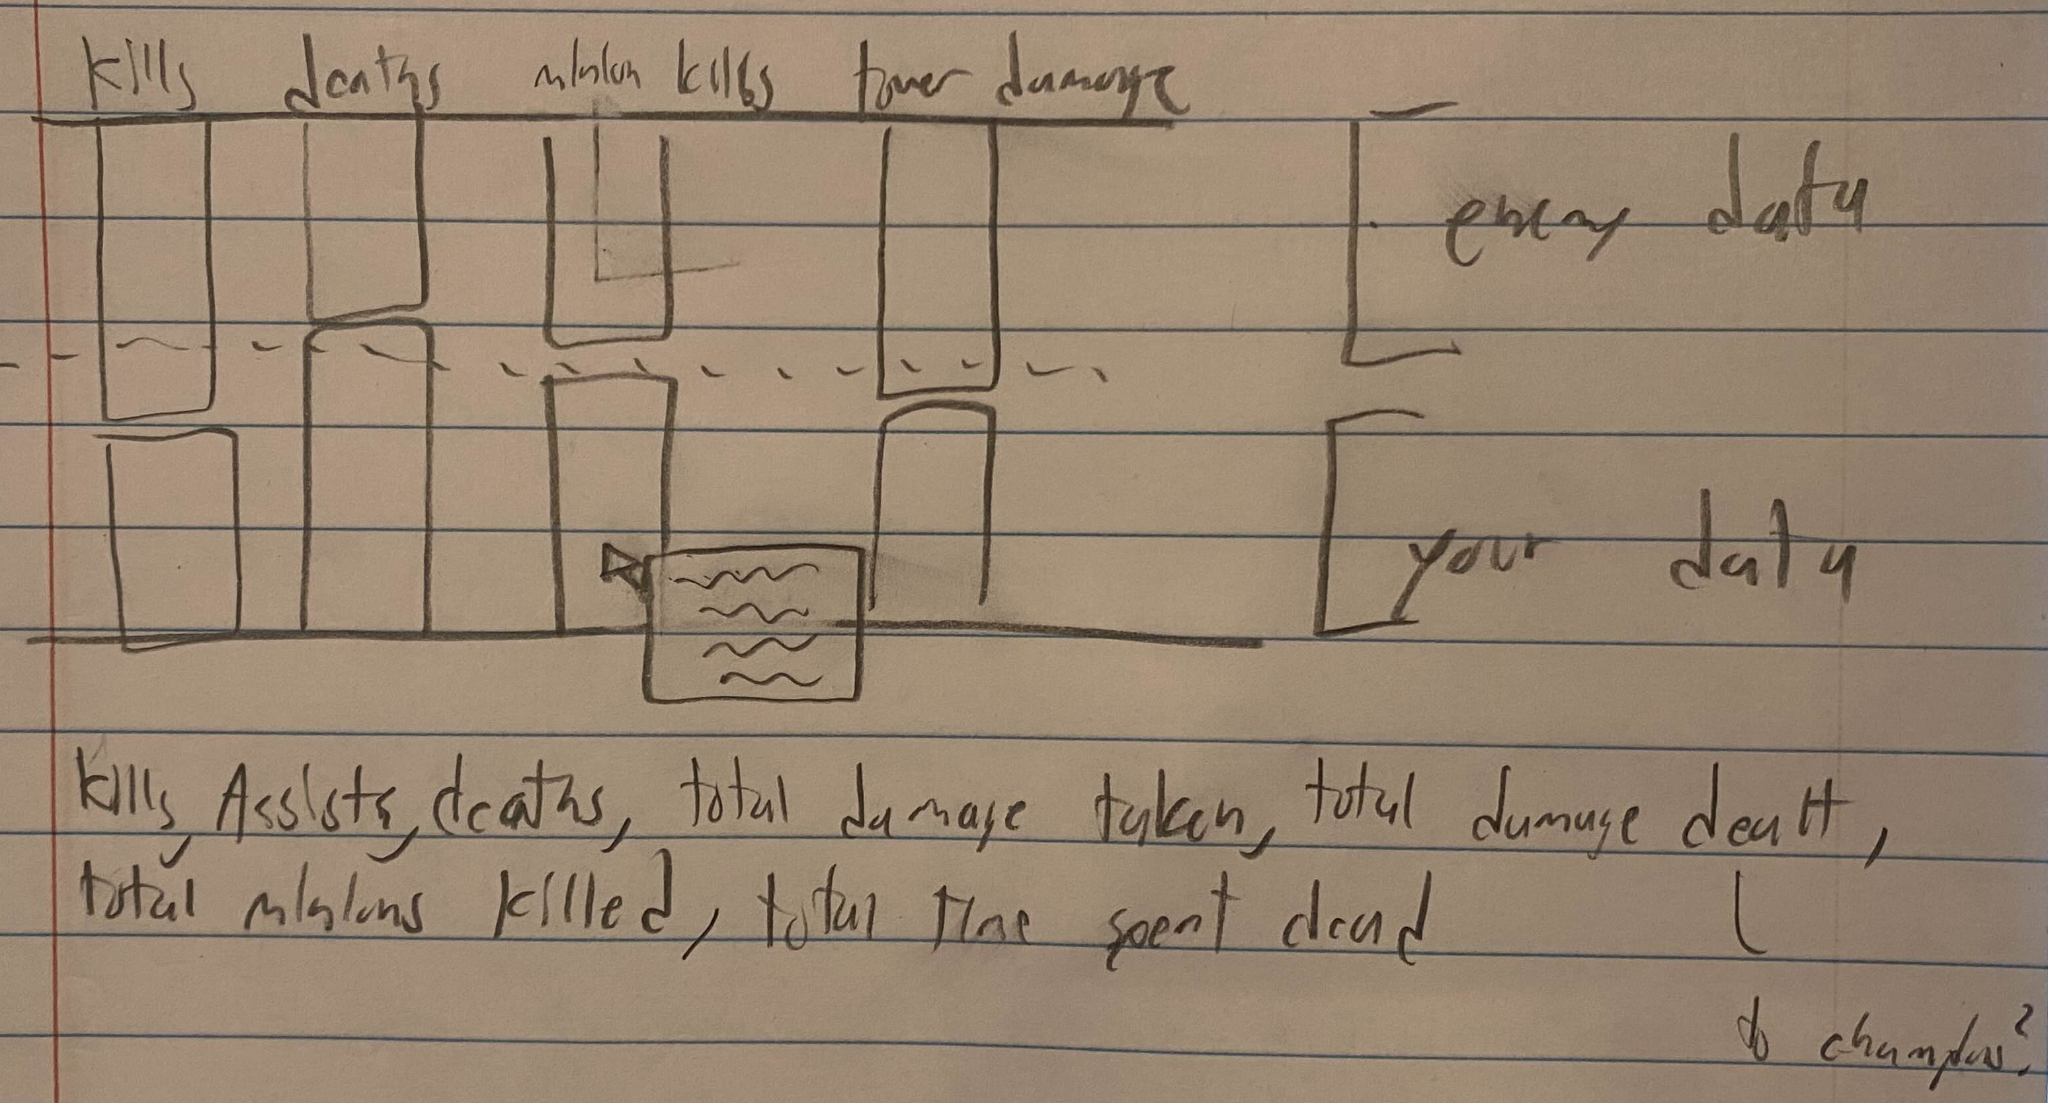 kills deaths minion kills tower damage
enemy data
your data
kills, Assists, deaths, total damage taken, total damage dealt,
total minions killed, total time spent dead
to champions?